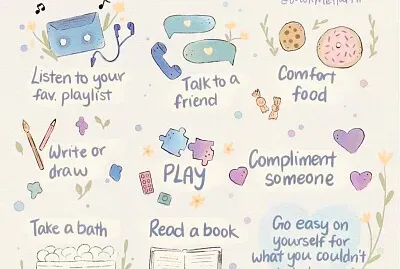 Listen to your
fav. playlist
Talk to a
friend
Comfort
food
Write or
draw
PLAY
Compliment
someone
Take a bath
Read a book
Go easy on
yourself for
what you couldn't